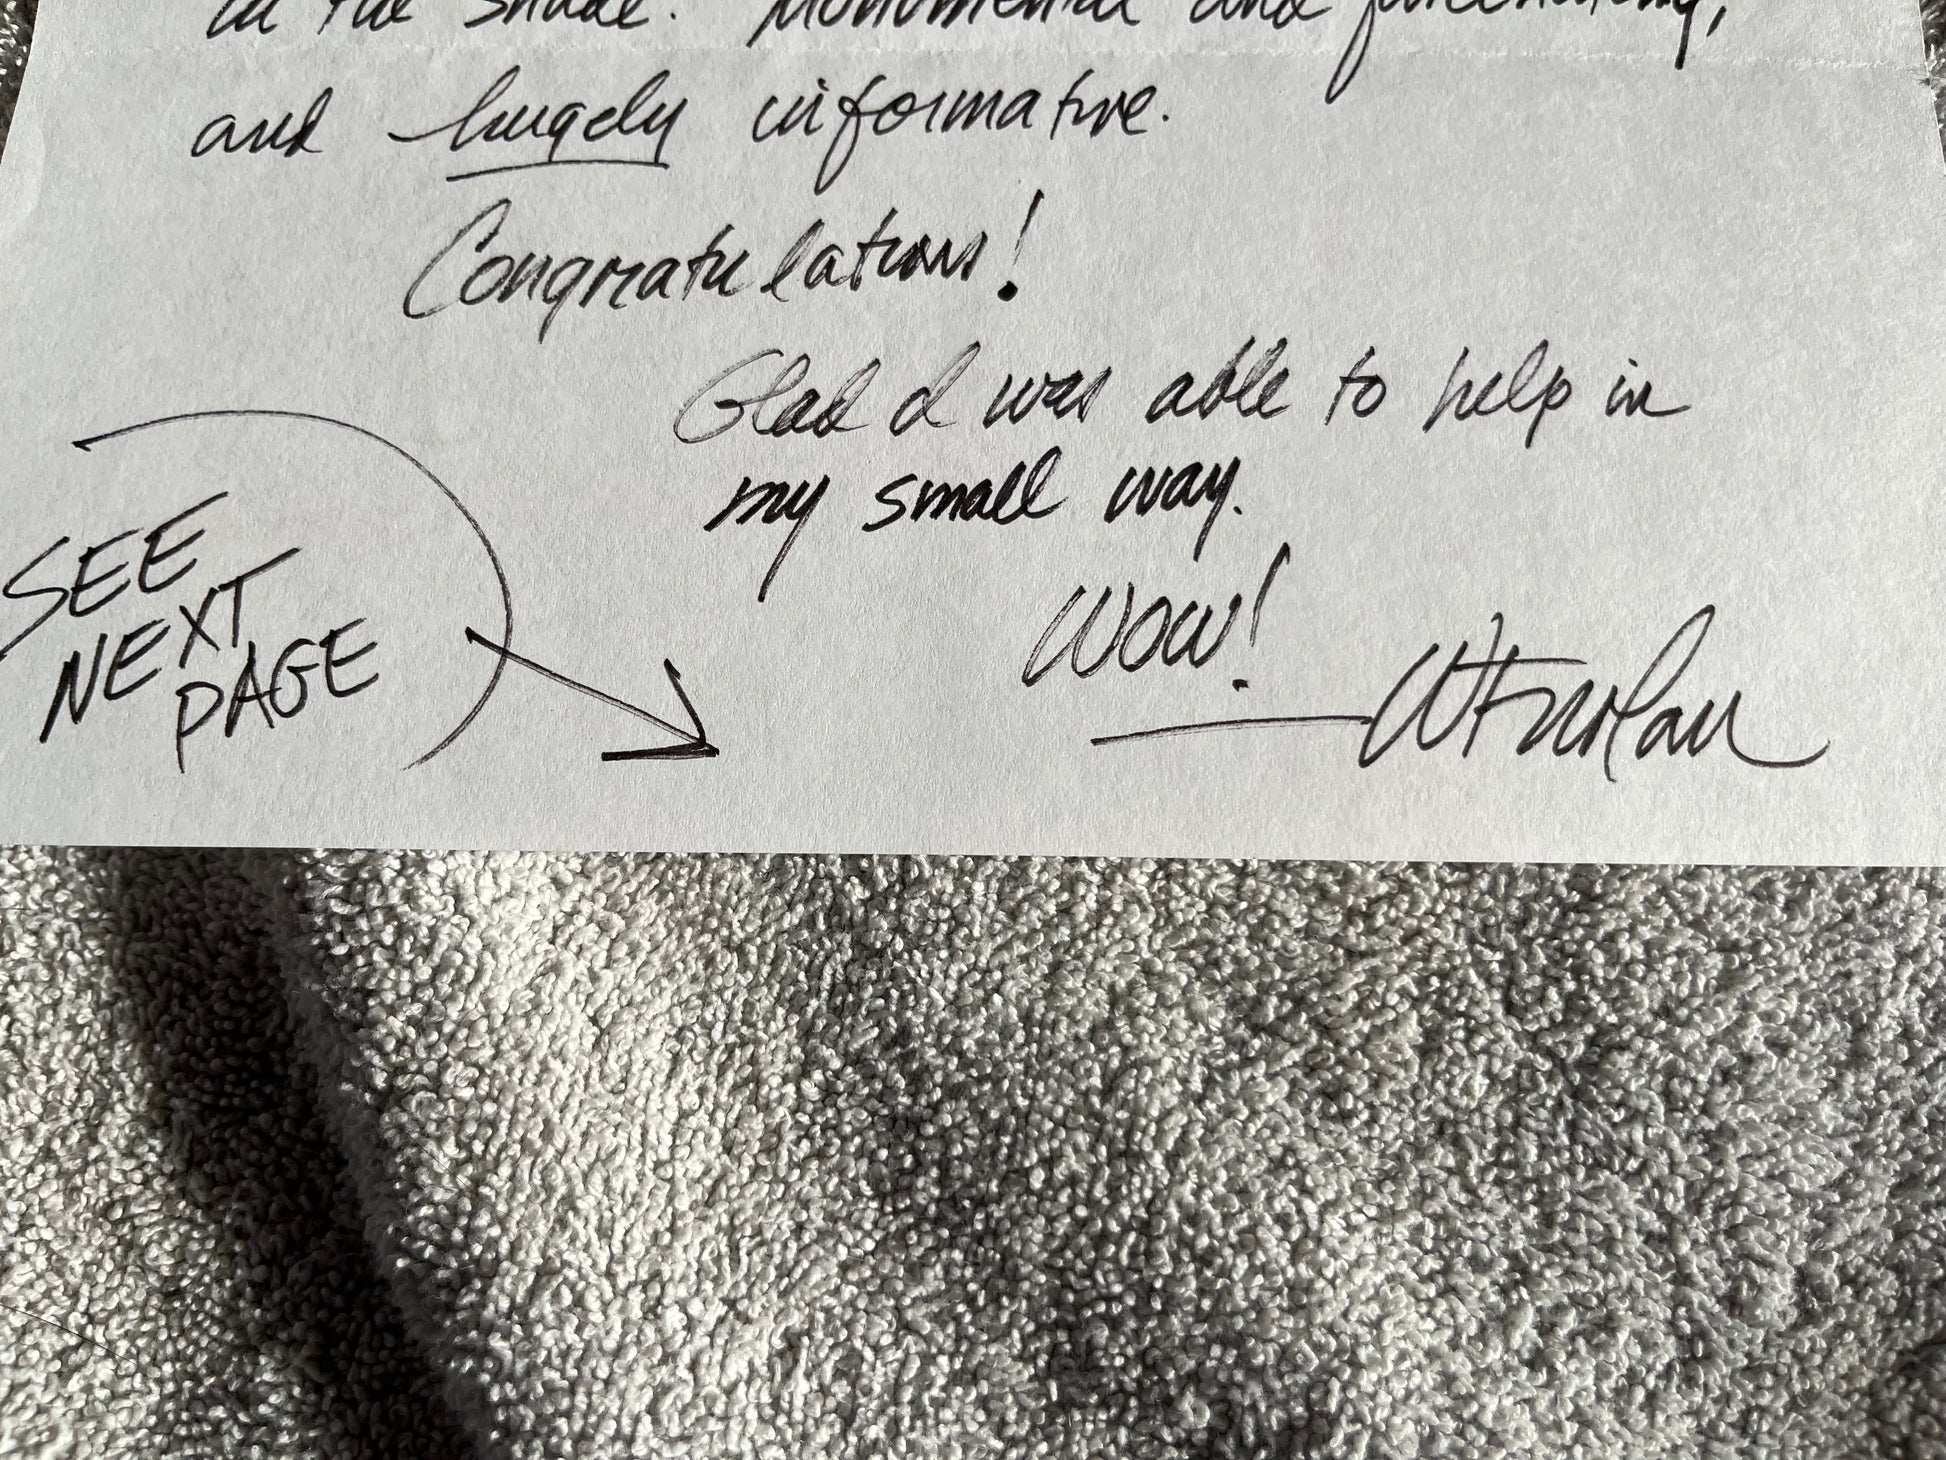 in the shade. Monumental and fascinating,
and hugely informative.
Congratulations!
Glad I was able to help in
my small way.
Wow!
SEE
NEXT
PAGE